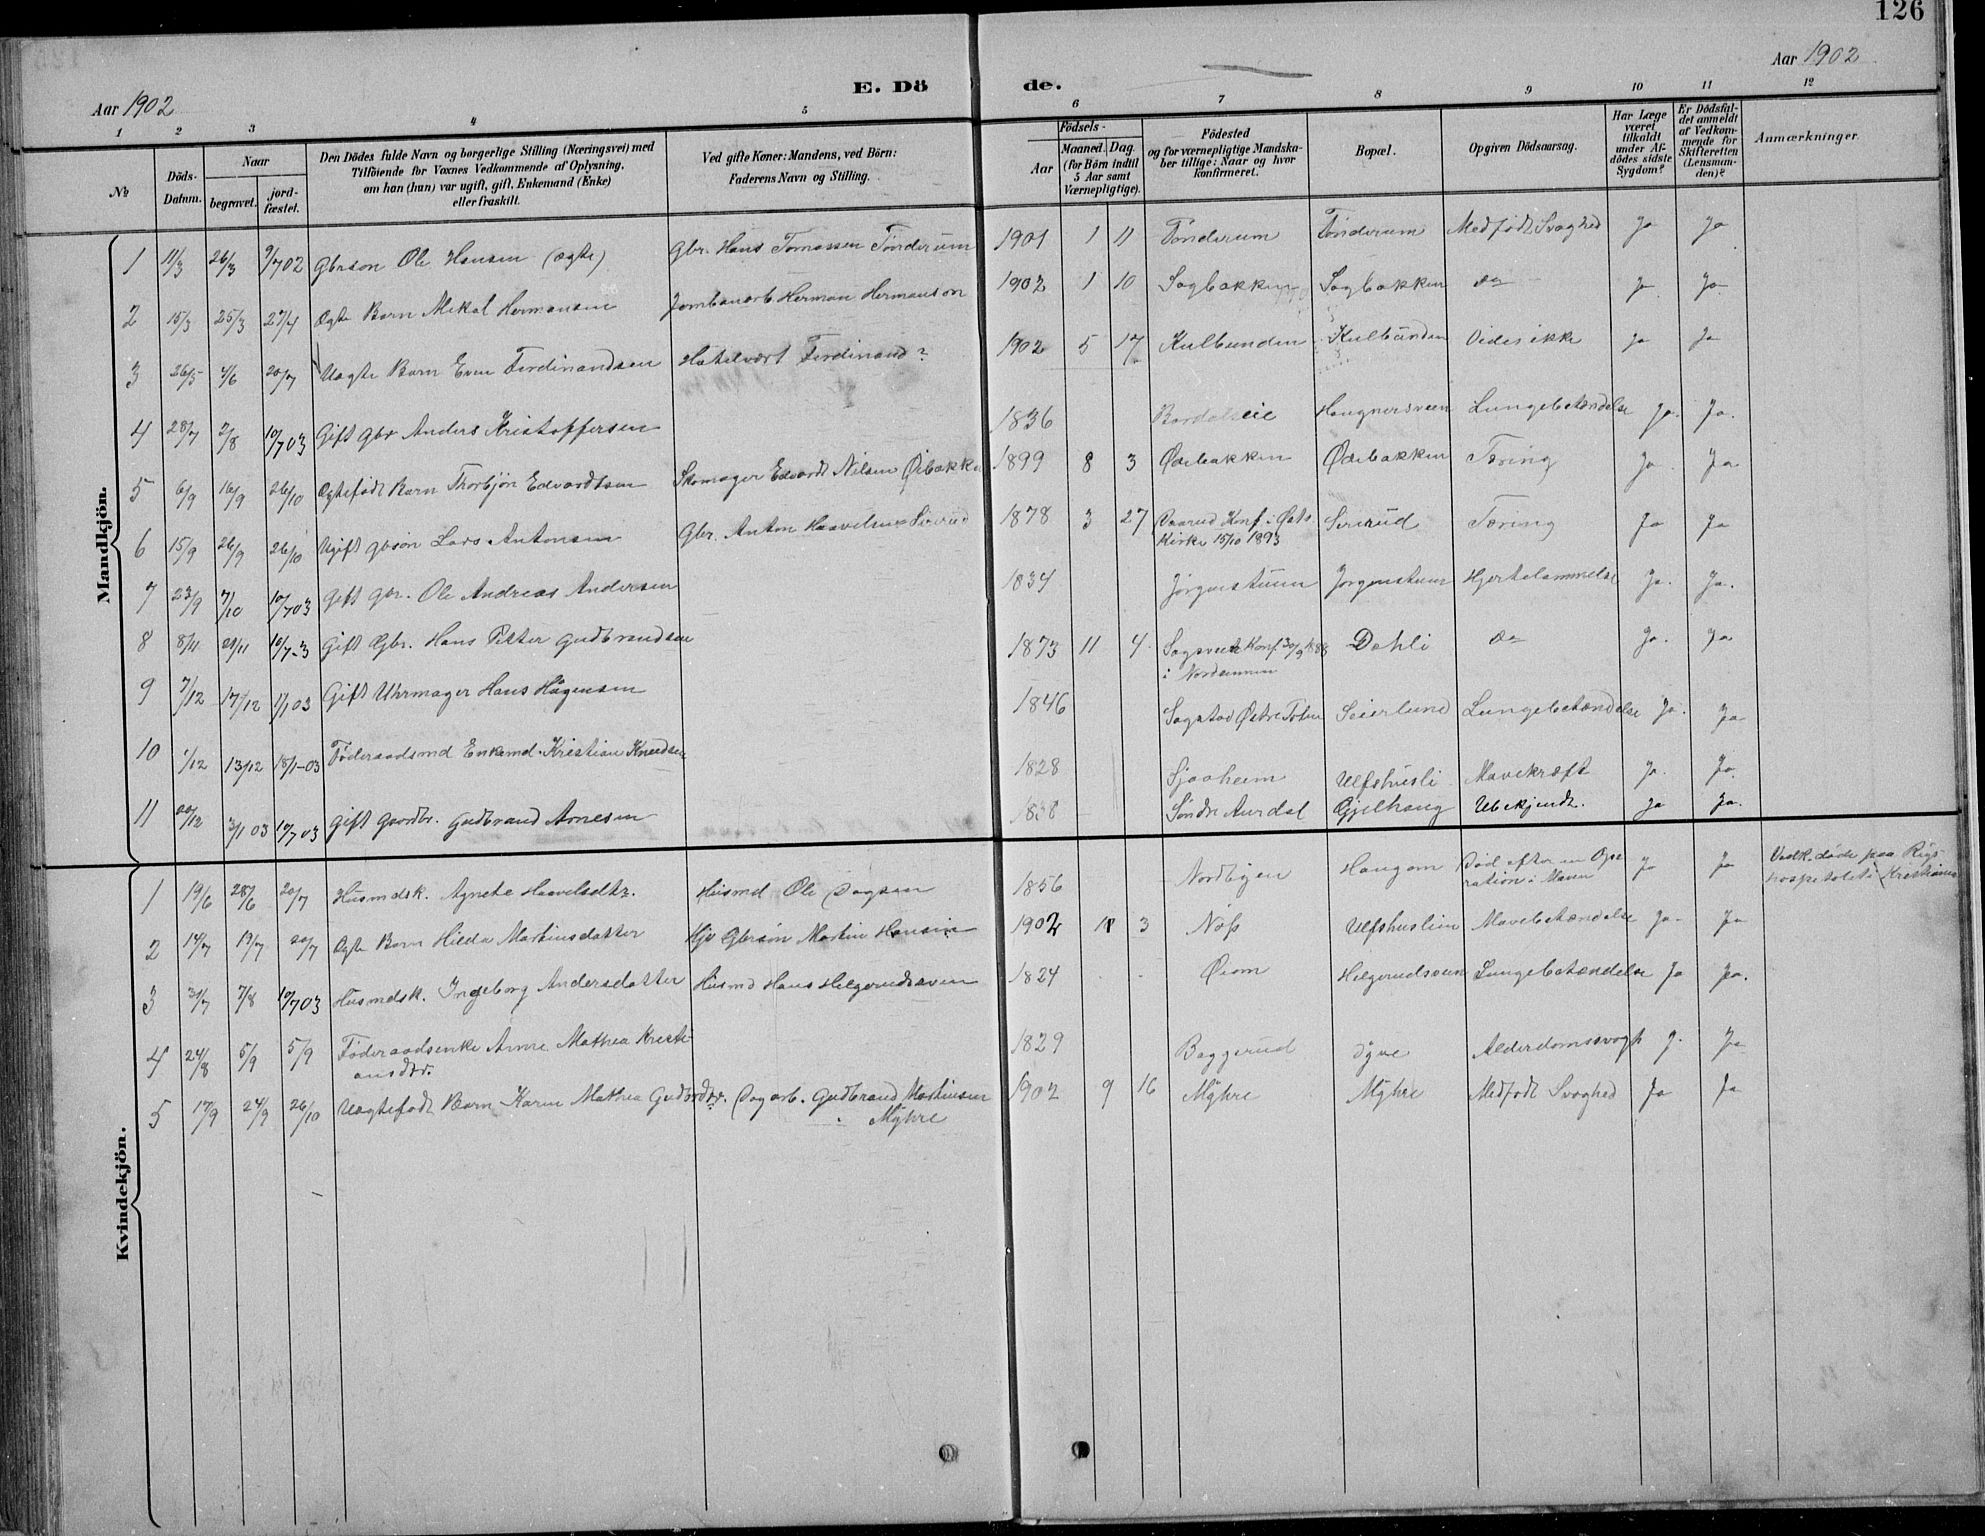 126
Aar 1902
E. Dö
de.
Aar 1902
1 2 3 4 5 6 7 8 9 10 11 12
No
Döds-Datum.
Naar
begravet.
jord-fæstet.
Den Dödes fulde Navn og borgerlige Stilling (Næringsvei) med
Tilföiende for Voxnes Vedkommende af Oplysning,
om han (hun) var ugift, gift, Enkemand (Enke)
eller fraskilt.
Ved gifte Koner: Mandens, ved Börn:
Faderens Navn og Stilling.
Födsels-
Aar
Maaned.
Dag.
(for Börn indtil
5 Aar samt
Værnepligtige).
Födested
og for værnepligtige Mandska-
ber tillige: Naar og hvor
konfirmeret.
Bopæl.
Opgiven Dödsaarsag.
Har Læge
været
tilkaldt
under Af-
dödes sidste
Sygdom?
Er Dödsfal-
det anmeldt
af Vedkom-
mende for
Skifteretten
(Lensman-
den)?
Anmærkninger.
Mandkjön.
1 11/3 26/3 9/7 02 Gbrsøn Ole Hansen (ægte) Gbr. Hans Tomassen Tønderum 1901 1 11 Tønderum Tønderum Medfødt Svaghed Ja Ja
2 15/3 25/3 27/4 Ægte Barn Mikal Hermansen Jernbanearb Herman Hermanson 1902 1 10 Sagbakken Sagbakken do Ja Ja
3 26/5 4/6 20/7 Uægte Barn Even Ferdinandsen Hotelvært Ferdinand? 1902 5 17 Kulbunden Kulbunden Vides ikke Ja Ja
4 28/7 2/8 10/7 03 Gift Gbr Anders Kristoffersen 1836 Bardalseie Haugnersveen Lungebetændelse Ja. Ja.
5 6/9 16/9 26/10 Ægtefødt Barn Thorbjørn Edvardsen Skomager Edvardt Nilsen Øibakke 1899 8 3 Ødebakken Ødebakken Tæring Ja Ja
6 15/9 26/9 26/10 Ugift gbsøn Lars Antonsen Gbr. Anton Haavelsen Sirerud 1878 3 27 Daarud Konf. i Østs Sirerud Tæring Ja Ja
Kirke 15/10 1893
7 23/9 7/10 10/7 03 Gift Gbr. Ole Andreas Andersen 1834 Jørgenstuen Jørgenstuen Hjertelammelse Ja. Ja.
8 8/11 21/11 10/7-3 Gift Gbr. Hans Petter Gudbrandsen 1873 11 4 Sagsveen Konf 30/9 1888 Dahli do Ja. Ja
i Nordsinnen
9 7/12 17/12 1/1 03 Gift Uhrmager Hans Hågensen 1846 Sogstad Østre Toten Seierlund Lungebetændelse Ja. Ja
10 1/12 13/12 18/1-03 Føderaadsmd Enkemd. Kristian Knudsen 1828 Sjaaheim Ulfshusli Mavekræft Ja. Ja.
11 20/12 3/1 03 10/7 03 Gift Gaardbr. Gudbrand Arnesen 1838 Søndre Aurdal Gjelhaug Ubekjendt. Ja Ja.
Kvindekjön.
1 19/6 28/6 20/7 Husmdsk. Agnete Haavelsdtr. Husmd Ole Dagsen 1856 Nordbygen Haugom Død efter en Ope- Ja Ja Vedk. døde paa Rigs-
ration i Maven hospitalet i Kristiania
2 14/7 19/7 20/7 Ægte Barn Hilda Martinsdatter Hjv Gbrsøn Martin Hansen 1902 1 3 Nøss Ulfshuslien Mavebetændelse Ja Ja
3 31/7 7/8 10/7 03 Husmdsk. Ingeborg Andersdatter Husmd Hans Helgerudsveen 1824 Øiom Helgerudsveen Lungebetændelse Ja Ja.
4 24/8 5/9 5/9 Føderaadsenke Anne Mathea Kristi- 1829 Baggerud Dyve Alderdomssvagh J. Ja
ansdtr.
5 17/9 24/9 26/10 Uægtefødt Barn Karen Mathea Gudbrdtr. Dagarb. Gudbrand Martinsen 1902 9 16 Myhre Myhre Medfødt Svaghed Ja Ja
Myhre